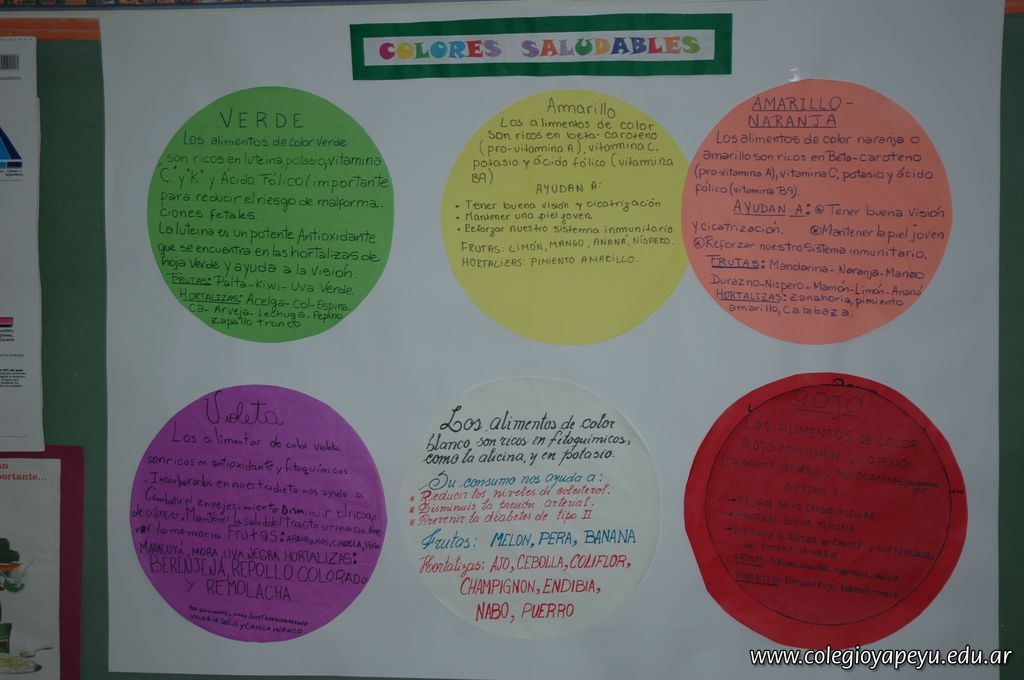 COLORES SALUDABLES
VERDE
Los alimentos de color verde
son ricos en luteína, potasio, vitamina
"C" y "K" y Ácido Fólico (importante
para reducir el riesgo de malforma-
ciones fetales.
La luteína es un potente Antioxidante
que se encuentra en las hortalizas de
hoja verde y ayuda a la visión.
FRUTAS: Palta-Kiwi-Uva Verde.
HORTALIZAS: Acelga-Col-Espina-
ca-Arveja-Lechuga-Pepino
zapallo tronco.
Amarillo
Los alimentos de color
son ricos en beta-caroteno
(pro-vitamina A), vitamina C,
potasio y ácido fólico (vitamina
B9)
AYUDAN A:
• Tener buena visión y cicatrización
• Mantener una piel joven
• Reforzar nuestro sistema inmunitario
FRUTAS: LIMÓN, MANGO, ANANÁ, NÍSPERO.
HORTALIZAS: PIMIENTO AMARILLO.
AMARILLO-
NARANJA
Los alimentos de color naranja o
amarillo son ricos en Beta-caroteno
(pro-vitamina A), vitamina C, potasio y ácido
fólico (vitamina B9).
AYUDAN A: Tener buena visión
y cicatrización. Mantener la piel joven
Reforzar nuestro Sistema inmunitario.
FRUTAS: Mandarina-Naranja-Mango
Durazno-Níspero-Mamón-Limón-Ananá
HORTALIZAS: zanahoria, pimiento
amarillo, Calabaza.
Violeta
Los alimentos de color violeta
son ricos en antioxidante y fitoquímicos.
Incorporarlos en nuestra dieta nos ayuda a:
Combatir el envejecimiento Disminuir el riesgo
de cáncer. Mantener la salud del tracto urinario.
la memoria FRUTAS: ARANDANOS, CIRUELA, HIGO
MARACUYA, MORA UVA NEGRA HORTALIZAS:
BERENJENA, REPOLLO COLORADO
Y REMOLACHA
VALERIA SOLIS y CAMILA
Los alimentos de color
blanco, son ricos en fitoquímicos,
como la alicina, y en potasio.
Su consumo nos ayuda a:
* Reducir los niveles de colesterol.
* Disminuir la presión arterial.
* Prevenir la diabetes de tipo II
Frutas: MELON, PERA, BANANA
Hortalizas: AJO, CEBOLLA, COLIFLOR,
CHAMPIGNON, ENDIBIA,
NABO, PUERRO
ROJO
LOS ALIMENTOS DE COLOR
ROJO CONTIENEN LICOPENO
(COLORANTE NATURAL) Y ANTOCIANINAS
AYUDAN A:
MEJORAR SALUD CARDIOVASCULAR
MANTENER BUENA MEMORIA
DISMINUIR EL RIESGO DE CANCER Y ENFERMEDADES
DE SISTEMA URINARIO
FRUTAS:
HORTALIZAS:
www.colegioyapeyu.edu.ar